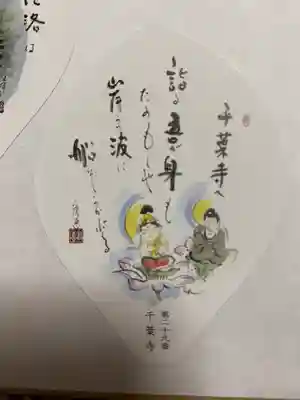 千葉寺へ
詣る吾が身も
たのもしや
岸うつ波に
船ぞうかぶる
第二十九番
千葉寺